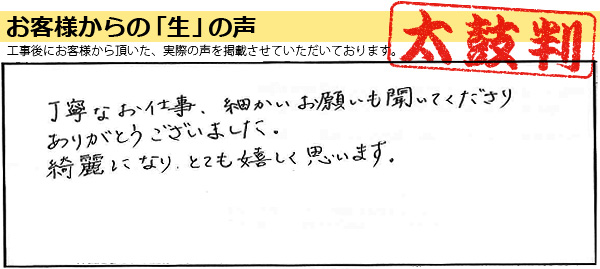 お客様からの「生」の声
工事後にお客様から頂いた、実際の声を掲載させていただいております。
太鼓判
丁寧なお仕事、細かいお願いも聞いてくださり
ありがとうございました。
綺麗になり、とても嬉しく思います。